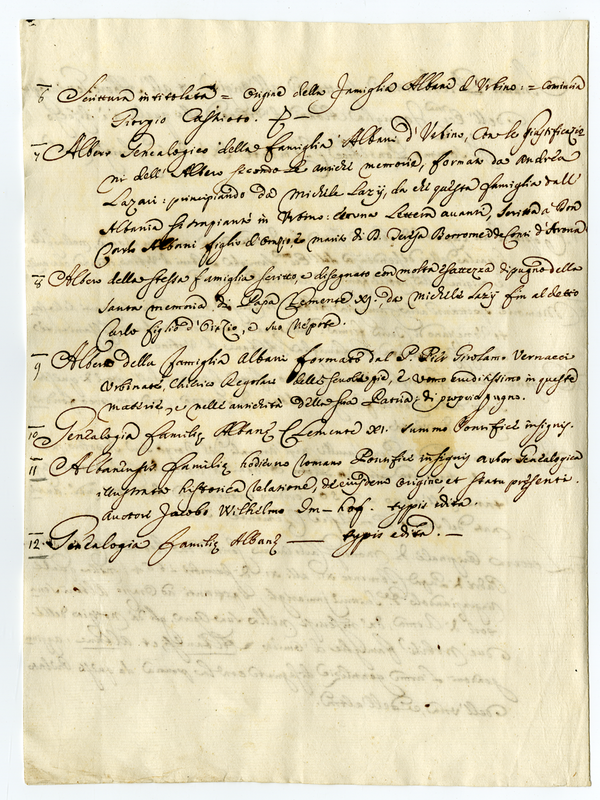 6 Scrittura intitolata = Origine della Famiglia Albani d'Urbino: = comincia
Giorgio Castrioto.
7 Albero Genealogico della Famiglia Albani d'Urbino, con le giustificazio
ni dell'Albero secondo le antiche memorie, formato da Andrea
Lazari: principiando da Michele Lazij, da che questa famiglia dall'
Albania si trapiantò in Urbino: con una Lettera avanti, scritta a Don
Carlo Albani figlio d'Orazio, e marito di D. Teresa Borromea de Conti d'Arona
8 Albero della stessa famiglia scritto e disegnato con molta esattezza di pugno della
santa memoria di Papa Clemente XI. da Michele Lazij fin al detto
Carlo figlio d'Orazio, e suo Nepote.
9 Albero della famiglia Albani formato dal P. Pier Girolamo Vernacci
Urbinate, Chierico Regolare delle Scuole pie, e uomo eruditissimo in queste
materie, e nelle antichità della sua Patria: di proprio pugno.
10 Genealogia familiæ Albanæ Clemente XI. summo Pontifice insignis.
11 Albanensis familiæ hodierno Romano Pontifice insignis arbor genealogica
illustrata historica relatione, de eiusdem origine et statu præsenti.
Auctore Jacobo Wilhelmo Im-hof. typis edita.
12. Genealogia familiæ Albanæ — typis edita. —